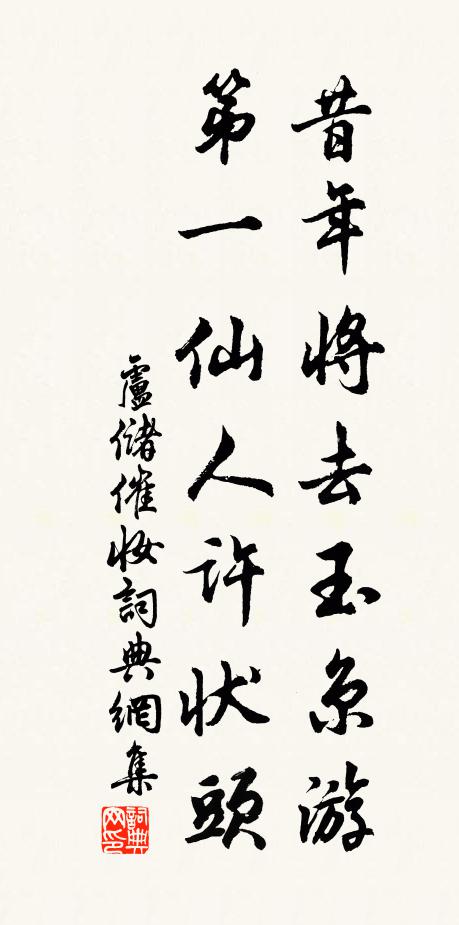 昔年将去玉京游
第一仙人许状頭
盧儲催妝詞典網集
詞典网印